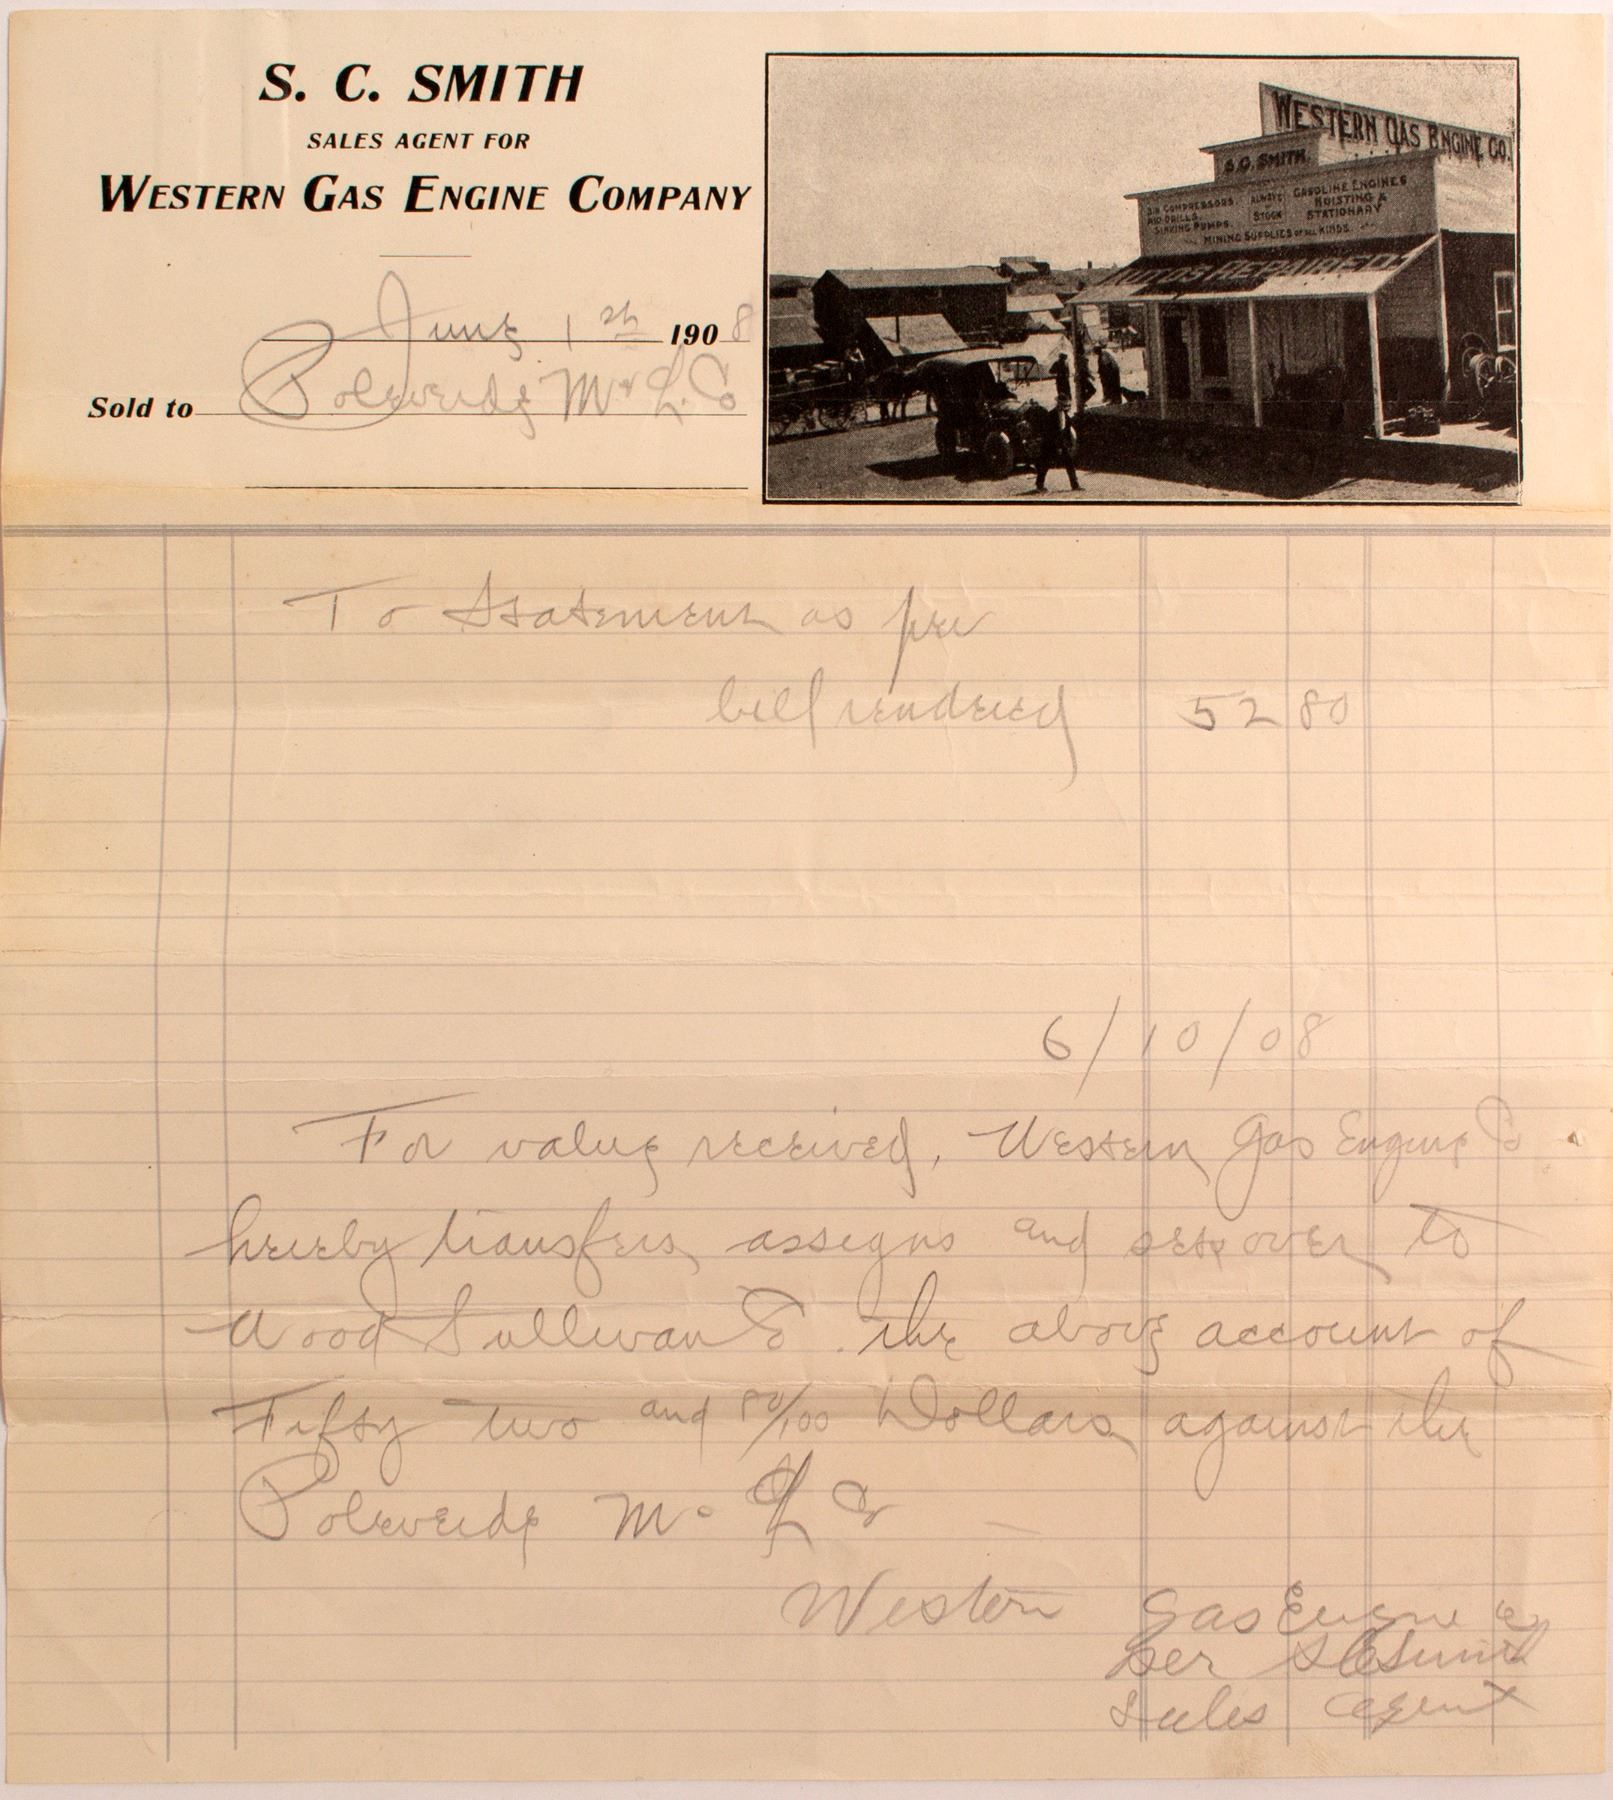 S. C. SMITH
SALES AGENT FOR
WESTERN GAS ENGINE COMPANY
June 1st 1908
Sold to Poleverde M & L. Co
WESTERN GAS ENGINE CO.
S.C. SMITH.
AIR COMPRESSORS. ALWAYS GASOLINE ENGINES
AND DRILLS. IN STOCK HOISTING &
SINKING PUMPS. STATIONARY
MINING SUPPLIES OF ALL KINDS.
AUTOS REPAIRED
To Statement as per
bill rendered 52 80
6/10/08
For value received, Western Gas Engine Co
hereby transfers, assigns and sets over to
Wood Sullivan Co. the above account of
Fifty two and 80/100 Dollars against the
Poleverde M & L Co
Western Gas Engine Co
per S C Smith
Sales Agent